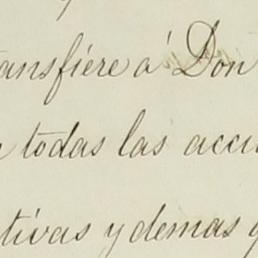 ansfiere á Don
todas las acci
tivas y demas q